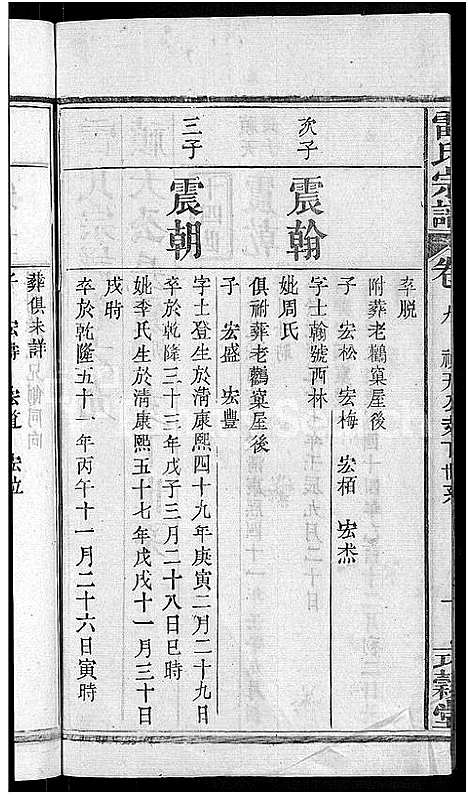 雷氏宗譜
卷九
卒脫
附葬老鸛窠屋後
子 宏松 宏梅 宏栢 宏杰
次子
震翰
字士翰號西林
妣周氏
俱祔葬老鸛窠屋後
子 宏盛 宏豐
三子
震朝
字士登生於清康熙四十九年庚寅二月二十九日
卒於乾隆三十三年戊子三月二十八日巳時
妣李氏生於清康熙五十七年戊戌十一月三十日
戌時
卒於乾隆五十一年丙午十一月二十六日寅時
葬俱未詳